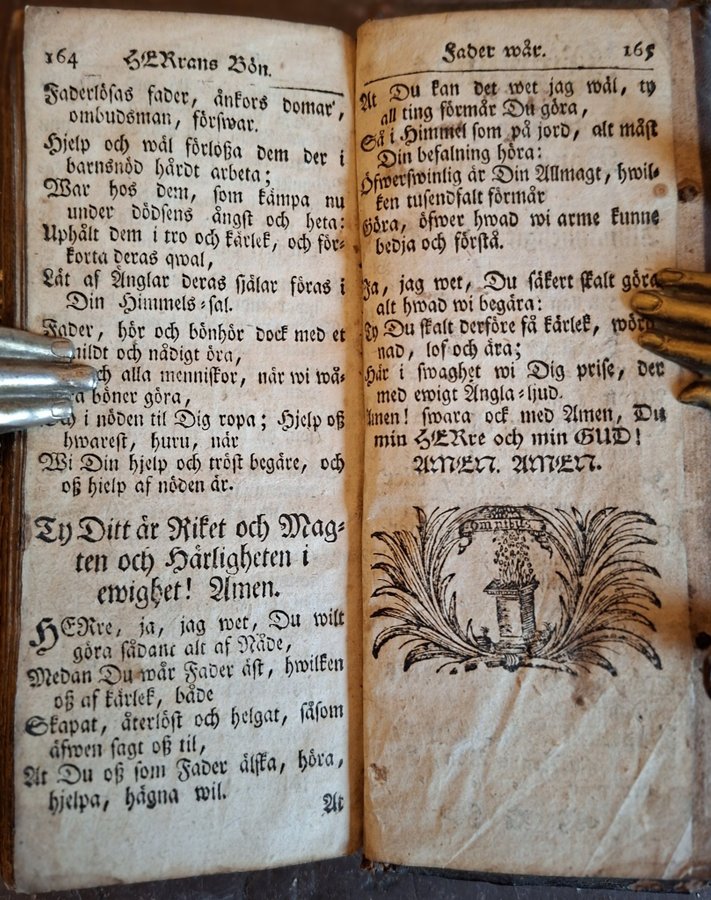 164 HERrans Bön.
Faderlösas fader, änkors domar,
ombudsman, förswar.
Hjelp och wäl förlößa dem der i
barnsnöd hårdt arbeta;
War hos dem, som kämpa nu
under dödsens ångst och heta:
Uphält dem i tro och kärlek, och för-
korta deras qwal,
Låt af Änglar deras själar föras i
Din Himmels-sal.
Fader, hör och bönhör dock med et
mildt och nådigt öra,
och alla menniskor, när wi wå-
ra böner göra,
Och i nöden til Dig ropa; Hjelp oß
hwarest, huru, när
Wi Din hjelp och tröst begäre, och
oß hielp af nöden är.
Ty Ditt är Riket och Mag-
ten och Härligheten i
ewighet! Amen.
HERre, ja, jag wet, Du wilt
göra sådant alt af Nåde,
Medan Du wår Fader äst, hwilken
oß af kärlek, både
Skapat, återlöst och helgat, såsom
äfwen sagt oß til,
At Du oß som Fader älska, höra,
hjelpa, hägna wil.
At
Fader wår. 165
At Du kan det wet jag wäl, ty
all ting förmår Du göra,
Så i Himmel som på jord, alt måst
Din befalning höra:
Öfwerswinlig är Din Allmagt, hwil-
ken tusendfalt förmår
Göra, öfwer hwad wi arme kunne
bedja och förstå.
Ja, jag wet, Du säkert skalt göra
alt hwad wi begära:
Ty Du skalt derföre få kärlek, wörd-
nad, lof och ära;
Här i swaghet wi Dig prise, der
med ewigt Ängla-ljud.
Amen! swara ock med Amen, Du
min HERre och min GUD!
AMEN. AMEN.